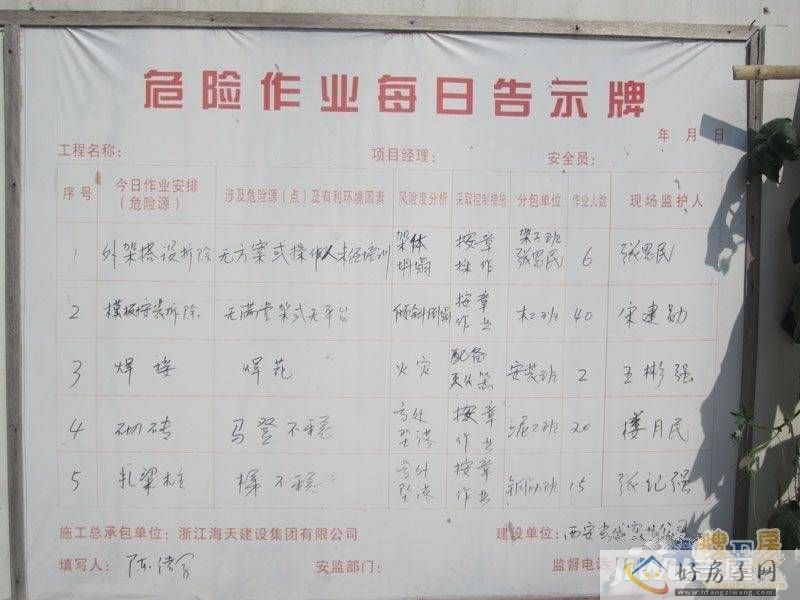 危险作业每日告示牌
年 月 日
工程名称： 项目经理： 安全员：
序号 今日作业安排（危险源） 涉及危险源（点）及有利环境因素 风险度分析 采取控制措施 分包单位 作业人数 现场监护人
1 外架搭设拆除 无方案或操作人未经培训 架体坍塌 按章操作 架子班 张思民 6 张思民
2 模板安装拆除 无满堂架或无平台 倾斜倒塌 按章作业 木工班 40 宋建勋
3 焊接 焊花 火灾 配备灭火器 安装班 2 王彬强
4 砌砖 马登不稳 高处坠落 按章作业 泥工班 20 楼月民
5 扎梁柱 梯不稳 高处坠落 按章作业 钢筋班 15 张记强
施工总承包单位：浙江海天建设集团有限公司 建设单位：西安
填写人： 安监部门： 监督电话
好房子网
www.hfangziwang.com